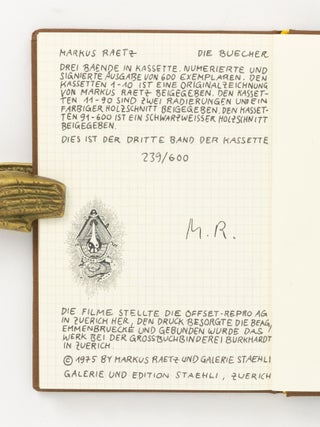 MARKUS RAETZ DIE BUECHER
DREI BAENDE IN KASSETTE. NUMERIERTE UND
SIGNIERTE AUSGABE VON 600 EXEMPLAREN. DEN
KASSETTEN 1-10 IST EINE ORIGINALZEICHNUNG
VON MARKUS RAETZ BEIGEGEBEN. DEN KASSET-
TEN 11-90 SIND ZWEI RADIERUNGEN UND EIN
FARBIGER HOLZSCHNITT BEIGEGEBEN. DEN KASSET-
TEN 91-600 IST EIN SCHWARZWEISSER HOLZSCHNITT
BEIGEGEBEN.
DIES IST DER DRITTE BAND DER KASSETTE
239/600
M.R.
DIE FILME STELLTE DIE OFFSET-REPRO AG
IN ZUERICH HER, DEN DRUCK BESORGTE DIE BEAG,
EMMENBRUECKE UND GEBUNDEN WURDE DAS
WERK BEI DER GROSSBUCHBINDEREI BURKHARDT
IN ZUERICH.
© 1975 BY MARKUS RAETZ UND GALERIE STAEHLI
GALERIE UND EDITION STAEHLI, ZUERICH